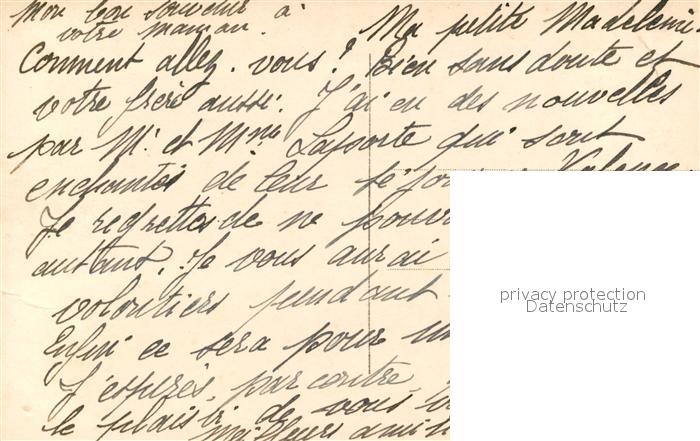 mon bon souvenir à
votre maman.
Ma petite Madeleine.
Comment allez-vous? Bien sans doute et
votre frère aussi. J'ai eu des nouvelles
par Mr. et Mme Laporte qui sont
enchantés de leur séjour Valence
Je regrette de ne pouv
autant. Je vous aurai
volontiers pendant
Enfin ce sera pour un
J'espérés, par contre
le plaisir de vous
meilleurs amit
privacy protection
Datenschutz